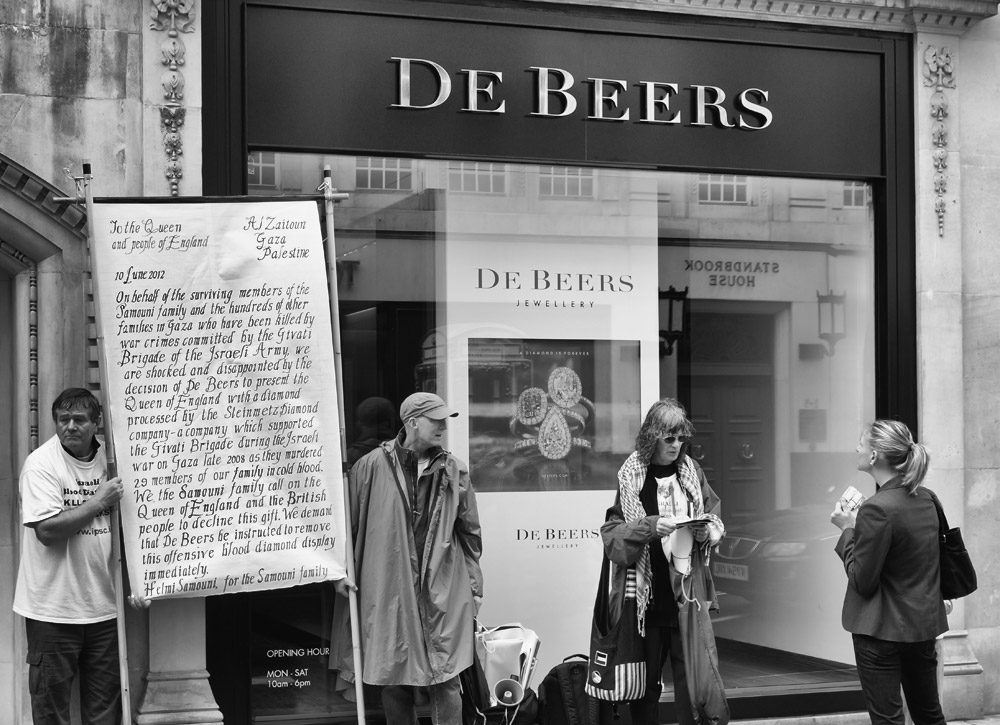 DE BEERS
To the Queen
and people of England
Al Zaitoun
Gaza
Palestine
10 June 2012
On behalf of the surviving members of the
Samouni family and the hundreds of other
families in Gaza who have been killed by
war crimes committed by the Givati
Brigade of the Israeli Army, we
are shocked and disappointed by the
decision of De Beers to present the
Queen of England with a diamond
processed by the Steinmetz Diamond
company-a company which supported
the Givati Brigade during the Israeli
war on Gaza late 2008 as they murdered
29 members of our family in cold blood.
We the Samouni family call on the
Queen of England and the British
people to decline this gift. We demand
that De Beers be instructed to remove
this offensive blood diamond display
immediately.
Helmi Samouni, for the Samouni family
DE BEERS
JEWELLERY
A DIAMOND IS FOREVER
STANDBROOK
HOUSE
DE BEERS
JEWELLERY
OPENING HOUR
MON - SAT
10am - 6pm